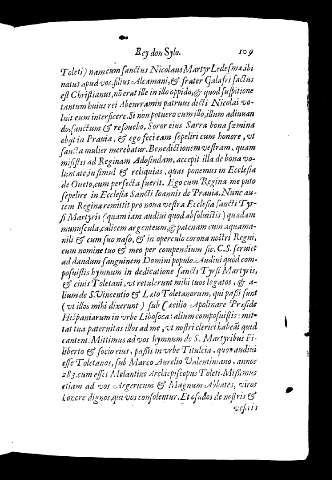 Rey don Sylo. 109
Toleti) nam cum sanctus Nicolaus Martyr Ledesmæ ibi
natus apud vos, filius Alcamani, & frater Galafri factus
est Christianus, nō erat ille in illo oppido, & quod suspitione
tantum huius rei Abenramin patruus dicti Nicolai vo-
luit eum interficere. Si non potuero cum illo, illum adiuuan
do sanctum & resouebo. Soror eius Sarra bona fæmina
obijt in Prauia, & ego feci eam sepeliri cum honore, vt
sancta mulier merebatur. Benedictionem vestram, quam
misistis ad Reginam Adosindam, accepit illa de bona vo-
luntate, insimul & reliquias, quas ponemus in Ecclesia
de Oueto, cum perfecta fuerit. Ego cum Regina me puto
sepelire in Ecclesia Sancti Ioannis de Prauia. Nunc au-
tem Regina remittit pro nona vestra Ecclesia sancti Tyr-
si Martyris (quam iam audiui quod absoluistis) quædam
munuscula, calicem argenteum, & patenam cum aquama-
nili & cum suo naso, & in operculo corona nostri Regni,
cum nomine tuo & meo per compendium sic. C.S. seruit
ad dandum sanguinem Domini populo. Audiui quod com-
posuistis hymnum in dedicatione sancti Tyrsi Martyris,
& ciuis Toletani, vt retulerunt mihi tuos legatos, & a-
lium de S. Vincentio & Leto Toletanorum, qui passi sunt
(vt illos mihi dixerunt) sub Cecilio Apolinare Præside
Hispaniarum in vrbe Libosoca: alium composuistis: mit-
tat tua paternitas illos ad me, vt nostri clerici habeāt quid
cantent. Mittimus ad vos hymnum de S. Martyribus Fi-
liberto & socio eius, passis in vrbe Titulcia, quos audiui
esse Toletanos, sub Marco Aurelio Valentiniano, anno
283. cum esset Melantius Archiepiscopus Toleti. Missimus
etiam ad vos Argericum & Magnum Abbates, viros
honore dignos, qui vos consolentur. Et osudos de nostris &
vestris